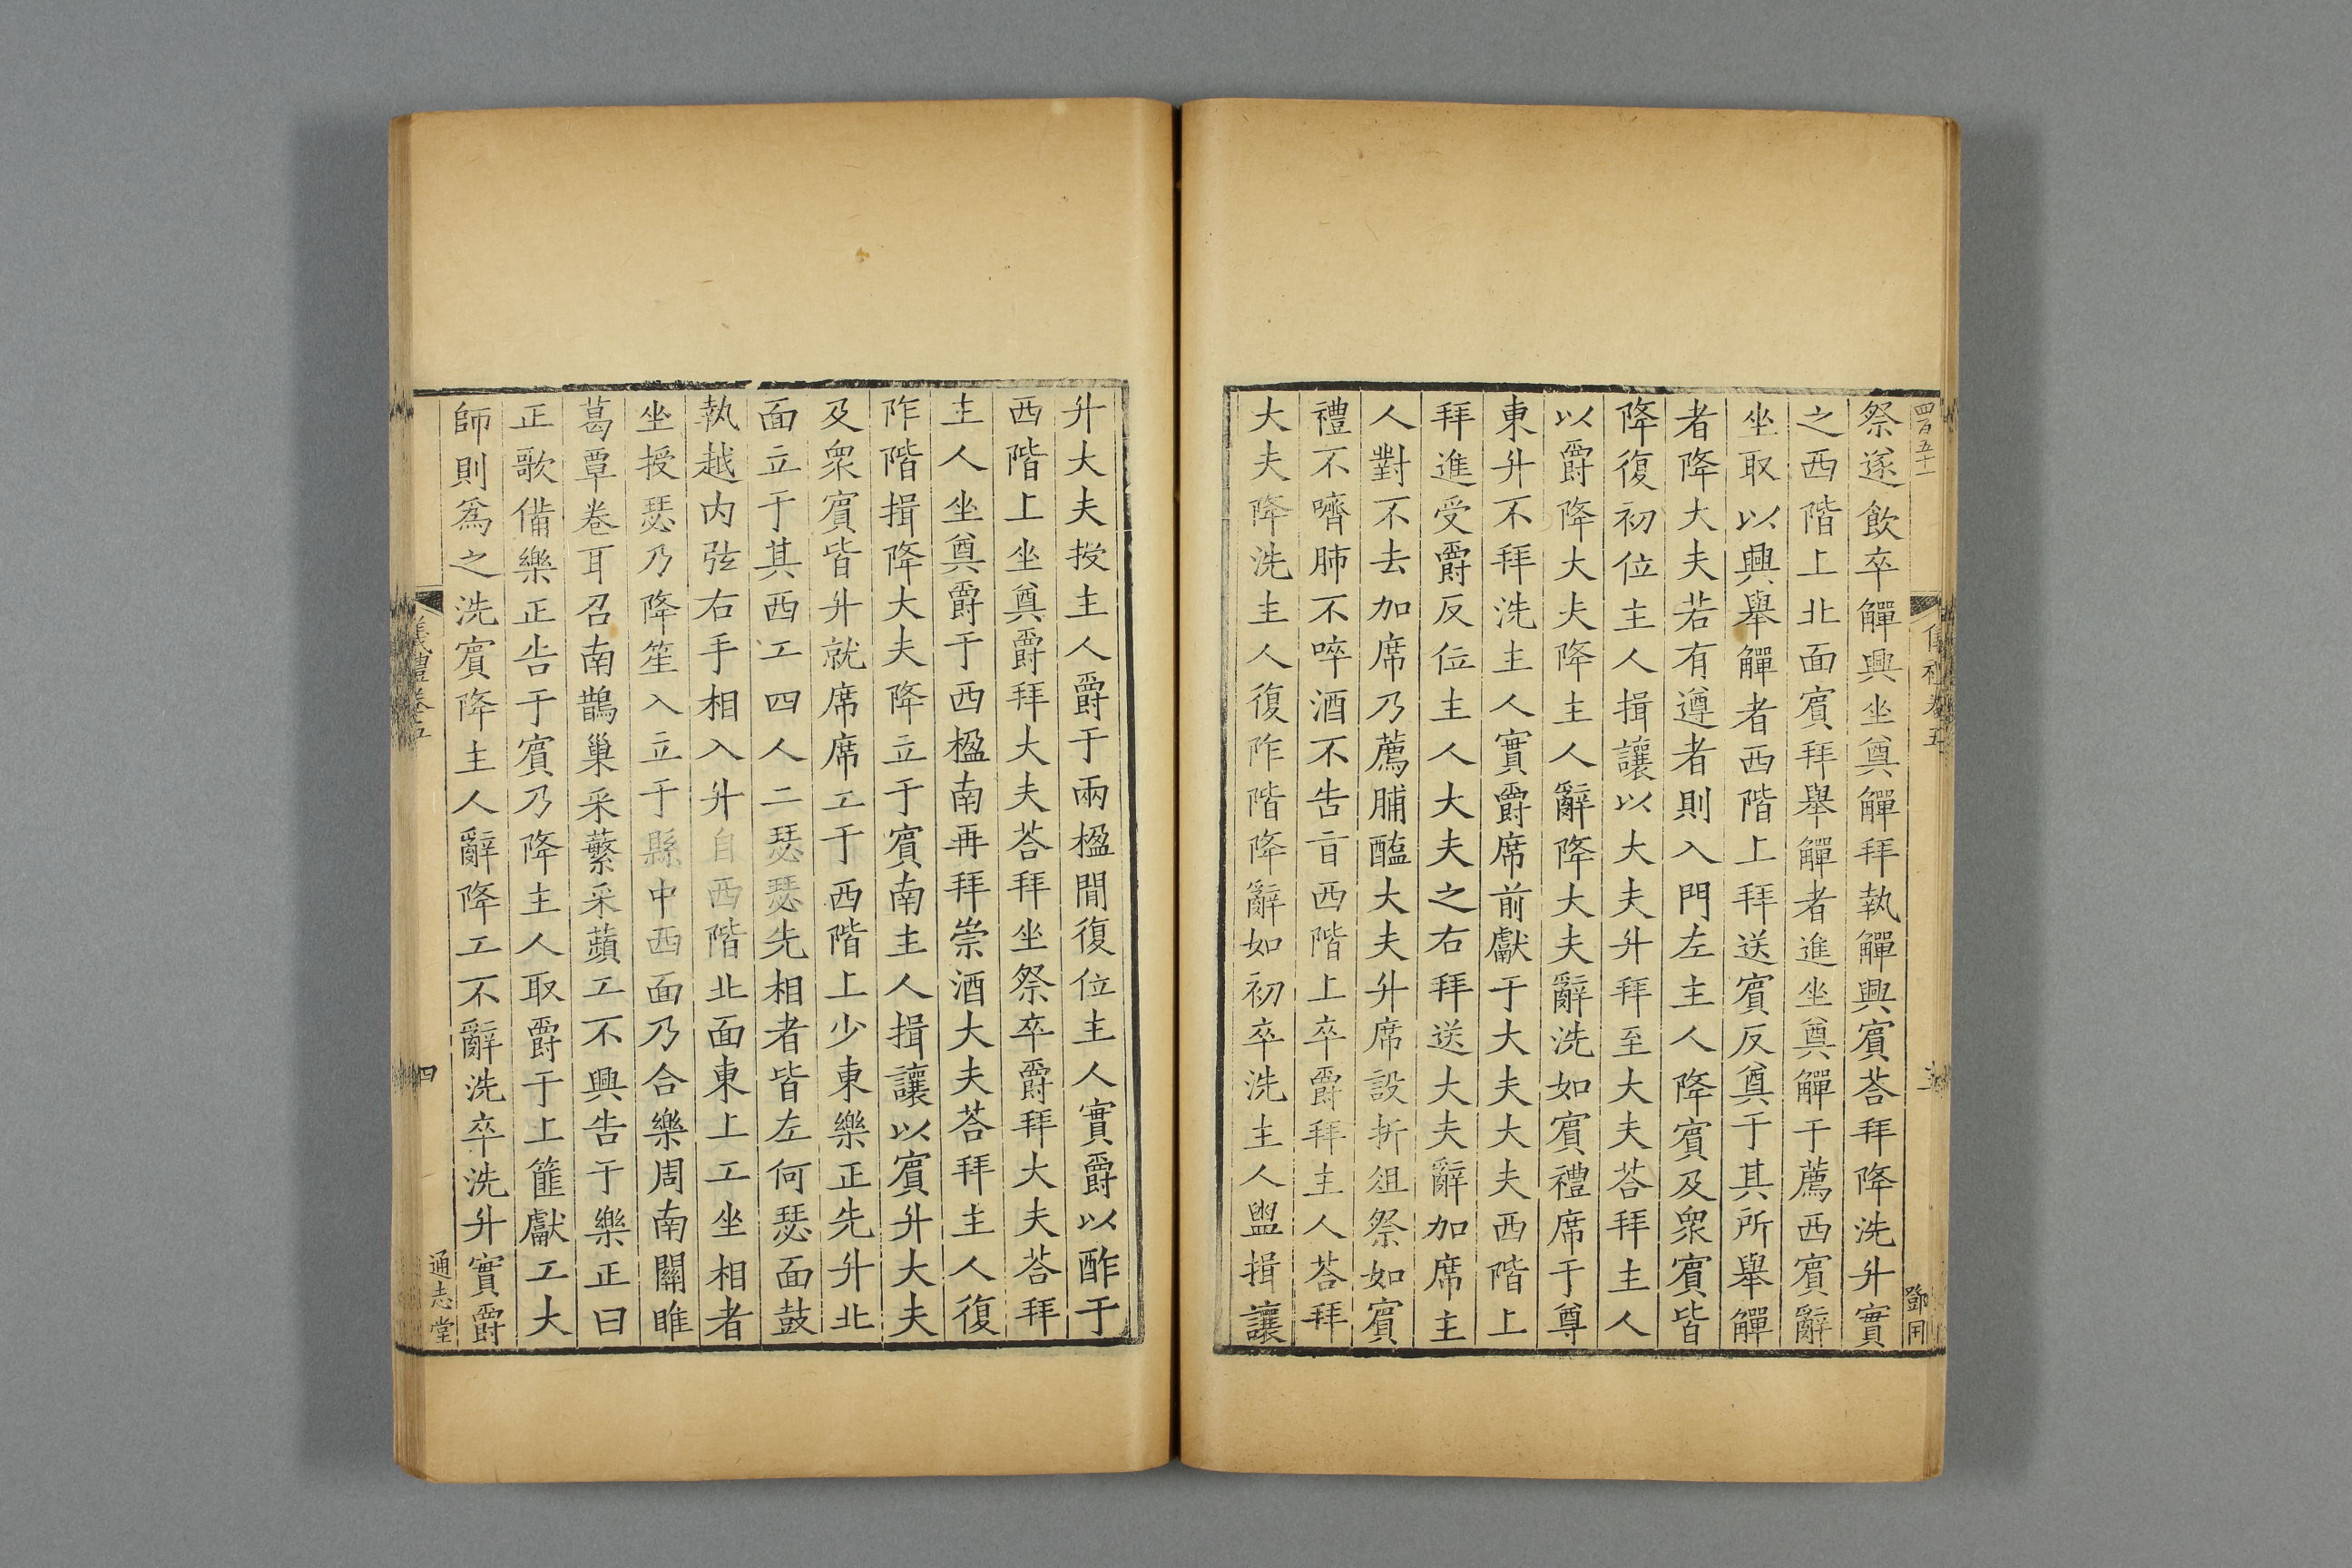 四百五十一
儀礼卷五
三
鄧閏
祭遂飲卒觶興坐奠觶拜執觶興賓荅拜降洗升實
之西階上北面賓拜舉觶者進坐奠觶于薦西賓辭
坐取以興舉觶者西階上拜送賓反奠于其所舉觶
者降大夫若有遵者則入門左主人降賓及眾賓皆
降復初位主人揖讓以大夫升拜至大夫荅拜主人
以爵降大夫降主人辭降大夫辭洗如賓禮席于尊
東升不拜洗主人實爵席前獻于大夫大夫西階上
拜進受爵反位主人大夫之右拜送大夫辭加席主
人對不去加席乃薦脯醢大夫升席設折俎祭如賓
禮不嚌肺不啐酒不告旨西階上卒爵拜主人荅拜
大夫降洗主人復阼階降辭如初卒洗主人盥揖讓
升大夫授主人爵于兩楹間復位主人實爵以酢于
西階上坐奠爵拜大夫荅拜坐祭卒爵拜大夫荅拜
主人坐奠爵于西楹南再拜崇酒大夫荅拜主人復
阼階揖降大夫降立于賓南主人揖讓以賓升大夫
及眾賓皆升就席席工于西階上少東樂正先升北
面立于其西工四人二瑟瑟先相者皆左何瑟面鼓
執越內弦右手相入升自西階北面東上工坐相者
坐授瑟乃降笙入立于縣中西面乃合樂周南關雎
葛覃卷耳召南鵲巢采蘩采蘋工不興告于樂正曰
正歌備樂正告于賓乃降主人取爵于上篚獻工大
師則為之洗賓降主人辭降工不辭洗卒洗升實爵
儀禮卷五
四
通志堂